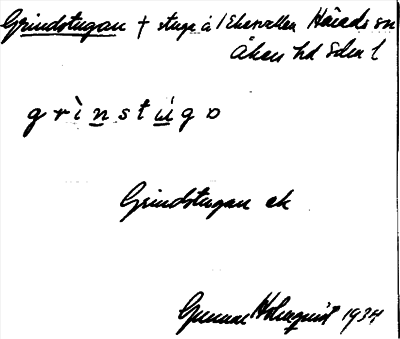 Grindstugan + stuga å 1 Ekevallen Härads sn
Åkers hd Sdm l
grìnstúgo
Grindstugan ek
Gunnar Holmquist 1934